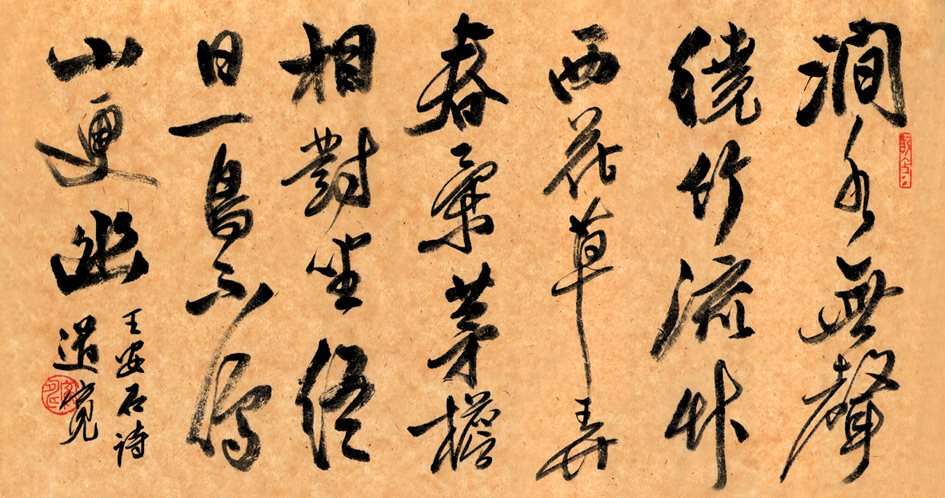 澗水無聲
繞竹流竹
西花草弄
春柔茅檐
相對坐終
日一鳥不鳴
山更幽
王安石诗
道宽